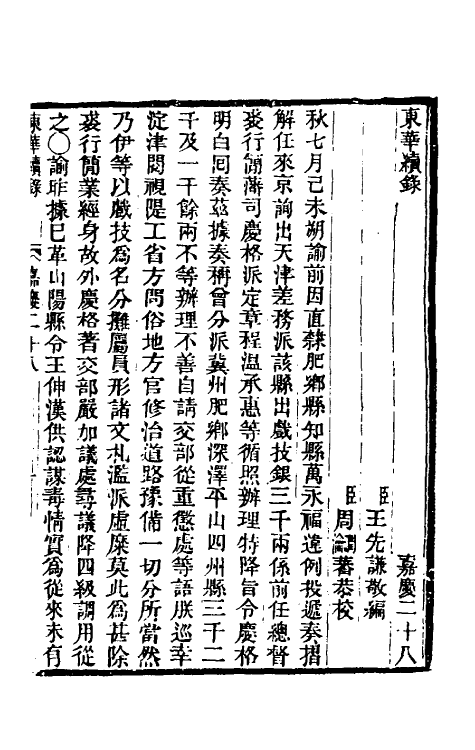 東華續錄 嘉慶二十八
臣王先謙敬編
臣周蕃恭校
秋七月己未朔諭前因直隸肥鄉縣知縣萬永福違例投遞奏摺
解任來京詢出天津差務派該縣出戲技銀三千兩係前任總督
裘行簡藩司慶格派定章程溫承惠等循照辦理特降旨令慶格
明白囘奏茲據奏稱曾分派冀州肥鄉深澤平山四州縣三千二
千及一千餘兩不等辦理不善自請交部從重懲處等語朕巡幸
淀津閱視隄工省方問俗地方官修治道路豫備一切分所當然
乃伊等以戲技爲名分攤屬員形諸文札濫派虛糜莫此爲甚除
裘行簡業經身故外慶格著交部嚴加議處尋議降四級調用從
之○諭昨據已革山陽縣令王伸漢供認謀毒情實爲從來未有
東華續錄 嘉慶二十八